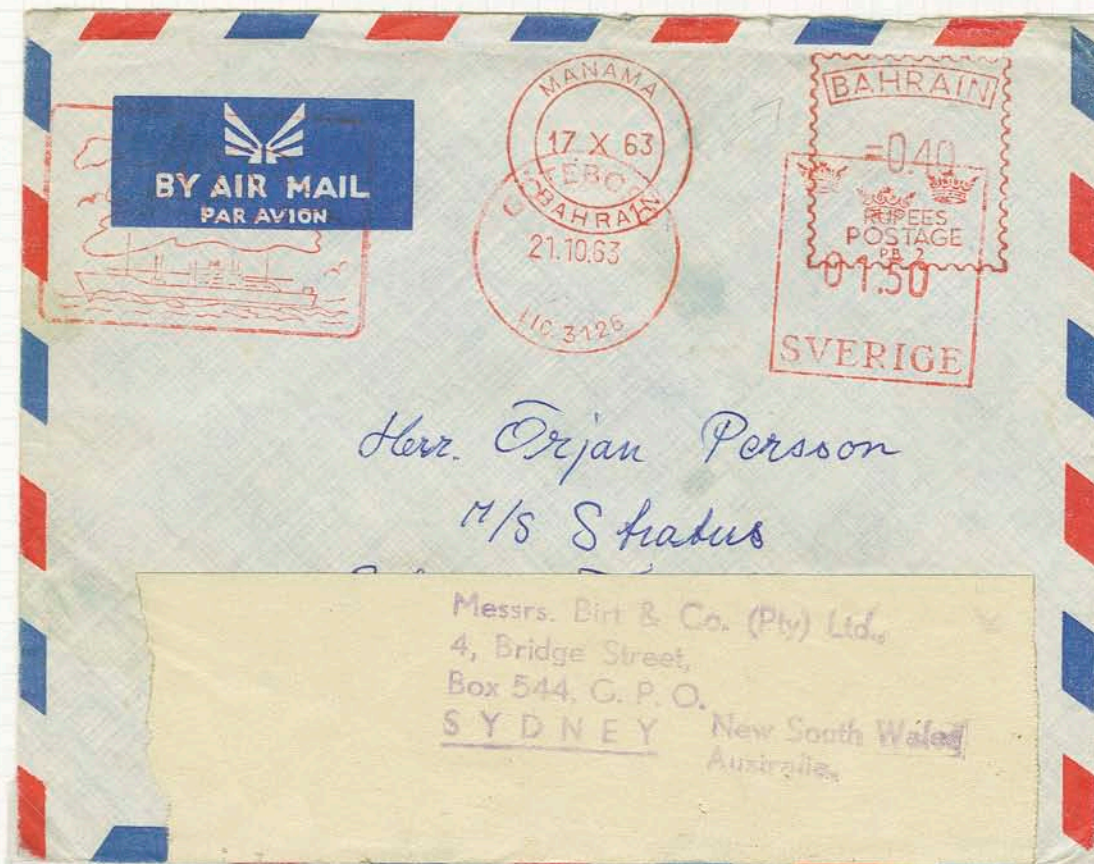 BY AIR MAIL
PAR AVION
MANAMA
17 X 63
BAHRAIN
21.10.63
LIC 3126
BAHRAIN
=0.40
RUPEES
POSTAGE
P.B. 2
01.50
SVERIGE
Herr. Örjan Persson
M/S Stratus
Messrs. Birt & Co. (Pty) Ltd.,
4, Bridge Street,
Box 544, G. P. O.
SYDNEY New South Wales
Australia.